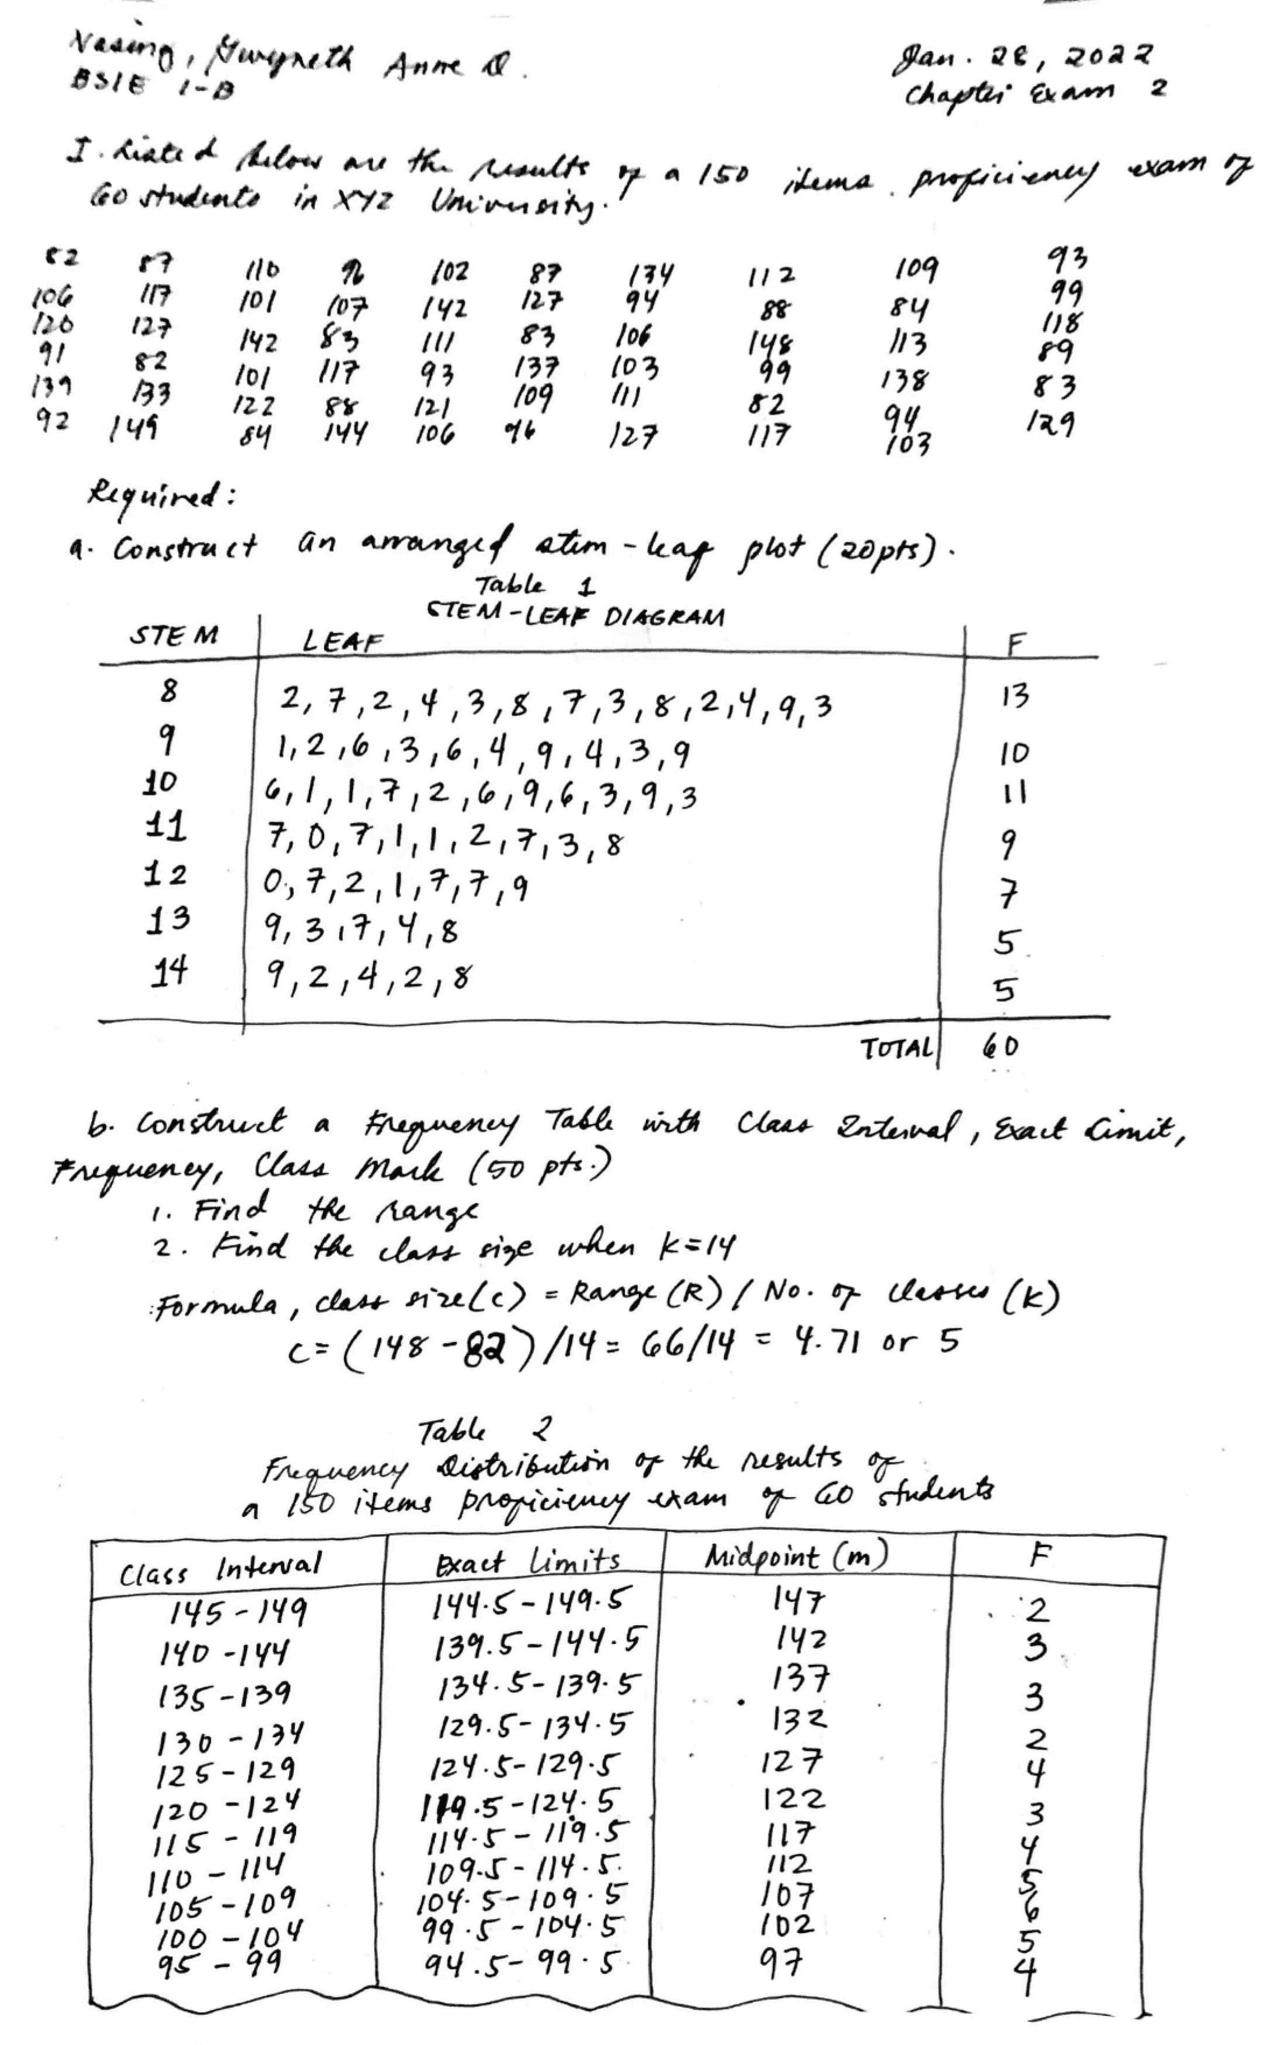 Nasing, Gwyneth Anne D.
BSIE 1-B
Jan. 28, 2022
Chapter Exam 2
I. Listed below are the results of a 150 items proficiency exam of
60 students in XYZ University.
82 87 110 96 102 87 134 112 109 93
106 117 101 107 142 127 94 88 84 99
120 127 142 83 111 83 106 148 113 118
91 82 101 117 93 137 103 99 138 89
139 133 122 88 121 109 111 82 94 83
92 149 84 144 106 96 127 117 103 129
Required:
a. Construct an arranged stem-leaf plot (20pts).
Table 1
STEM-LEAF DIAGRAM
STEM LEAF F
8 2,7,2,4,3,8,7,3,8,2,4,9,3 13
9 1,2,6,3,6,4,9,4,3,9 10
10 6,1,1,7,2,6,9,6,3,9,3 11
11 7,0,7,1,1,2,7,3,8 9
12 0,7,2,1,7,7,9 7
13 9,3,7,4,8 5
14 9,2,4,2,8 5
TOTAL 60
b. Construct a Frequency Table with Class Interval, Exact Limit,
Frequency, Class Mark (50 pts.)
1. Find the range
2. Find the class size when K=14
Formula, class size(c) = Range (R) / No. of classes (K)
c= (148-82)/14 = 66/14 = 4.71 or 5
Table 2
Frequency Distribution of the results of
a 150 items proficiency exam of 60 students
Class Interval Exact Limits Midpoint (m) F
145-149 144.5-149.5 147 2
140-144 139.5-144.5 142 3
135-139 134.5-139.5 137 3
130-134 129.5-134.5 132 2
125-129 124.5-129.5 127 4
120-124 119.5-124.5 122 3
115-119 114.5-119.5 117 4
110-114 109.5-114.5 112 5
105-109 104.5-109.5 107 6
100-104 99.5-104.5 102 5
95-99 94.5-99.5 97 4